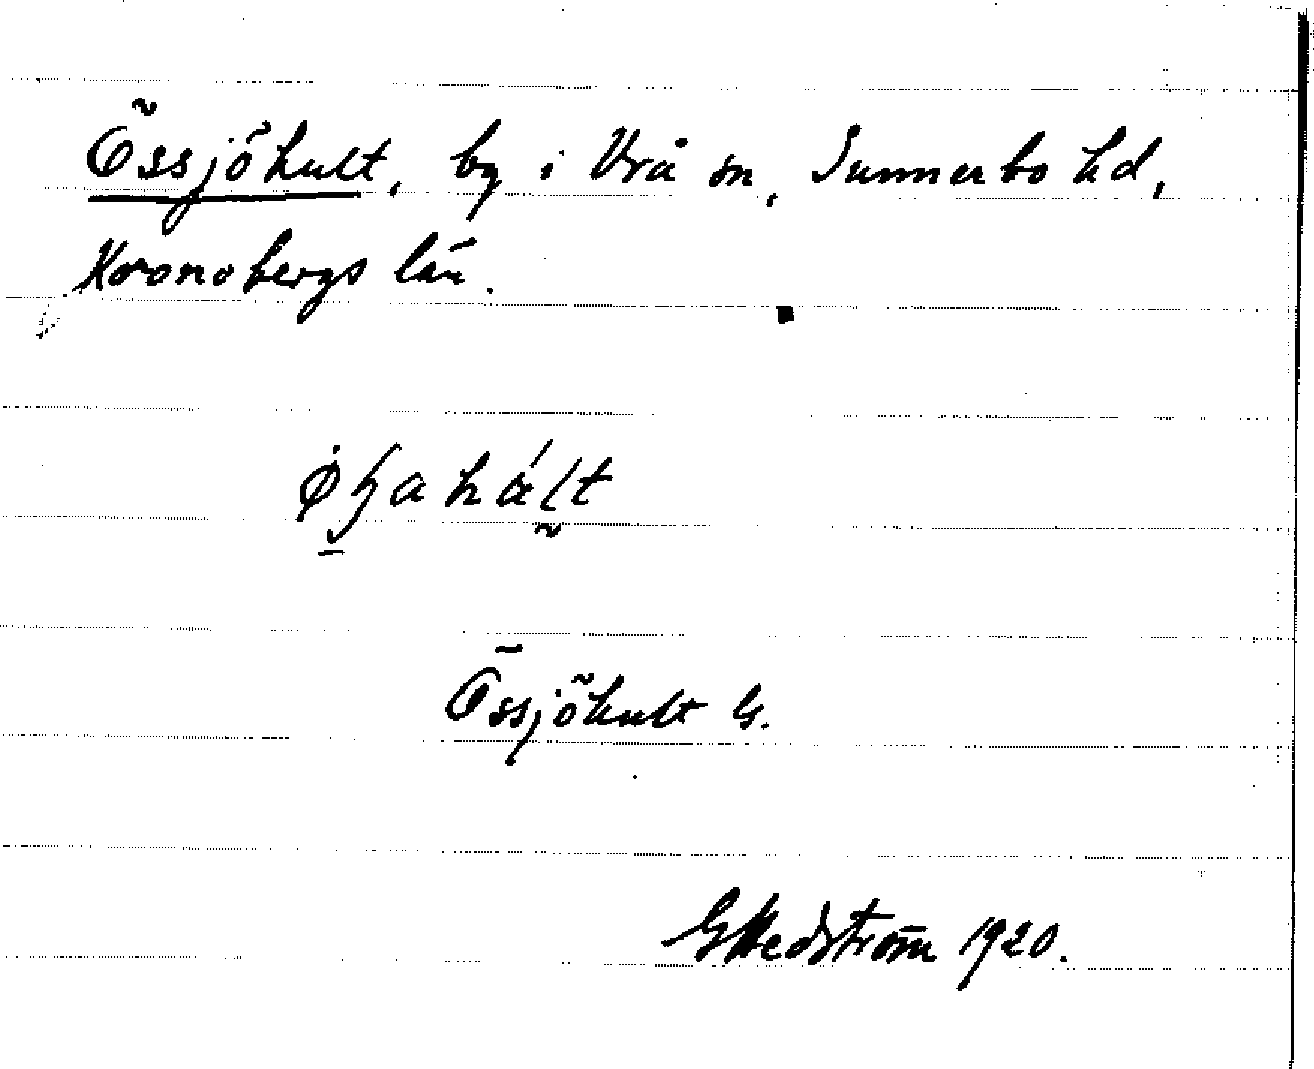 Össjöhult, by i Vrå sn, Sunnerbo hd,
Kronobergs län.
Össjöhult G.
G Hedström 1920.